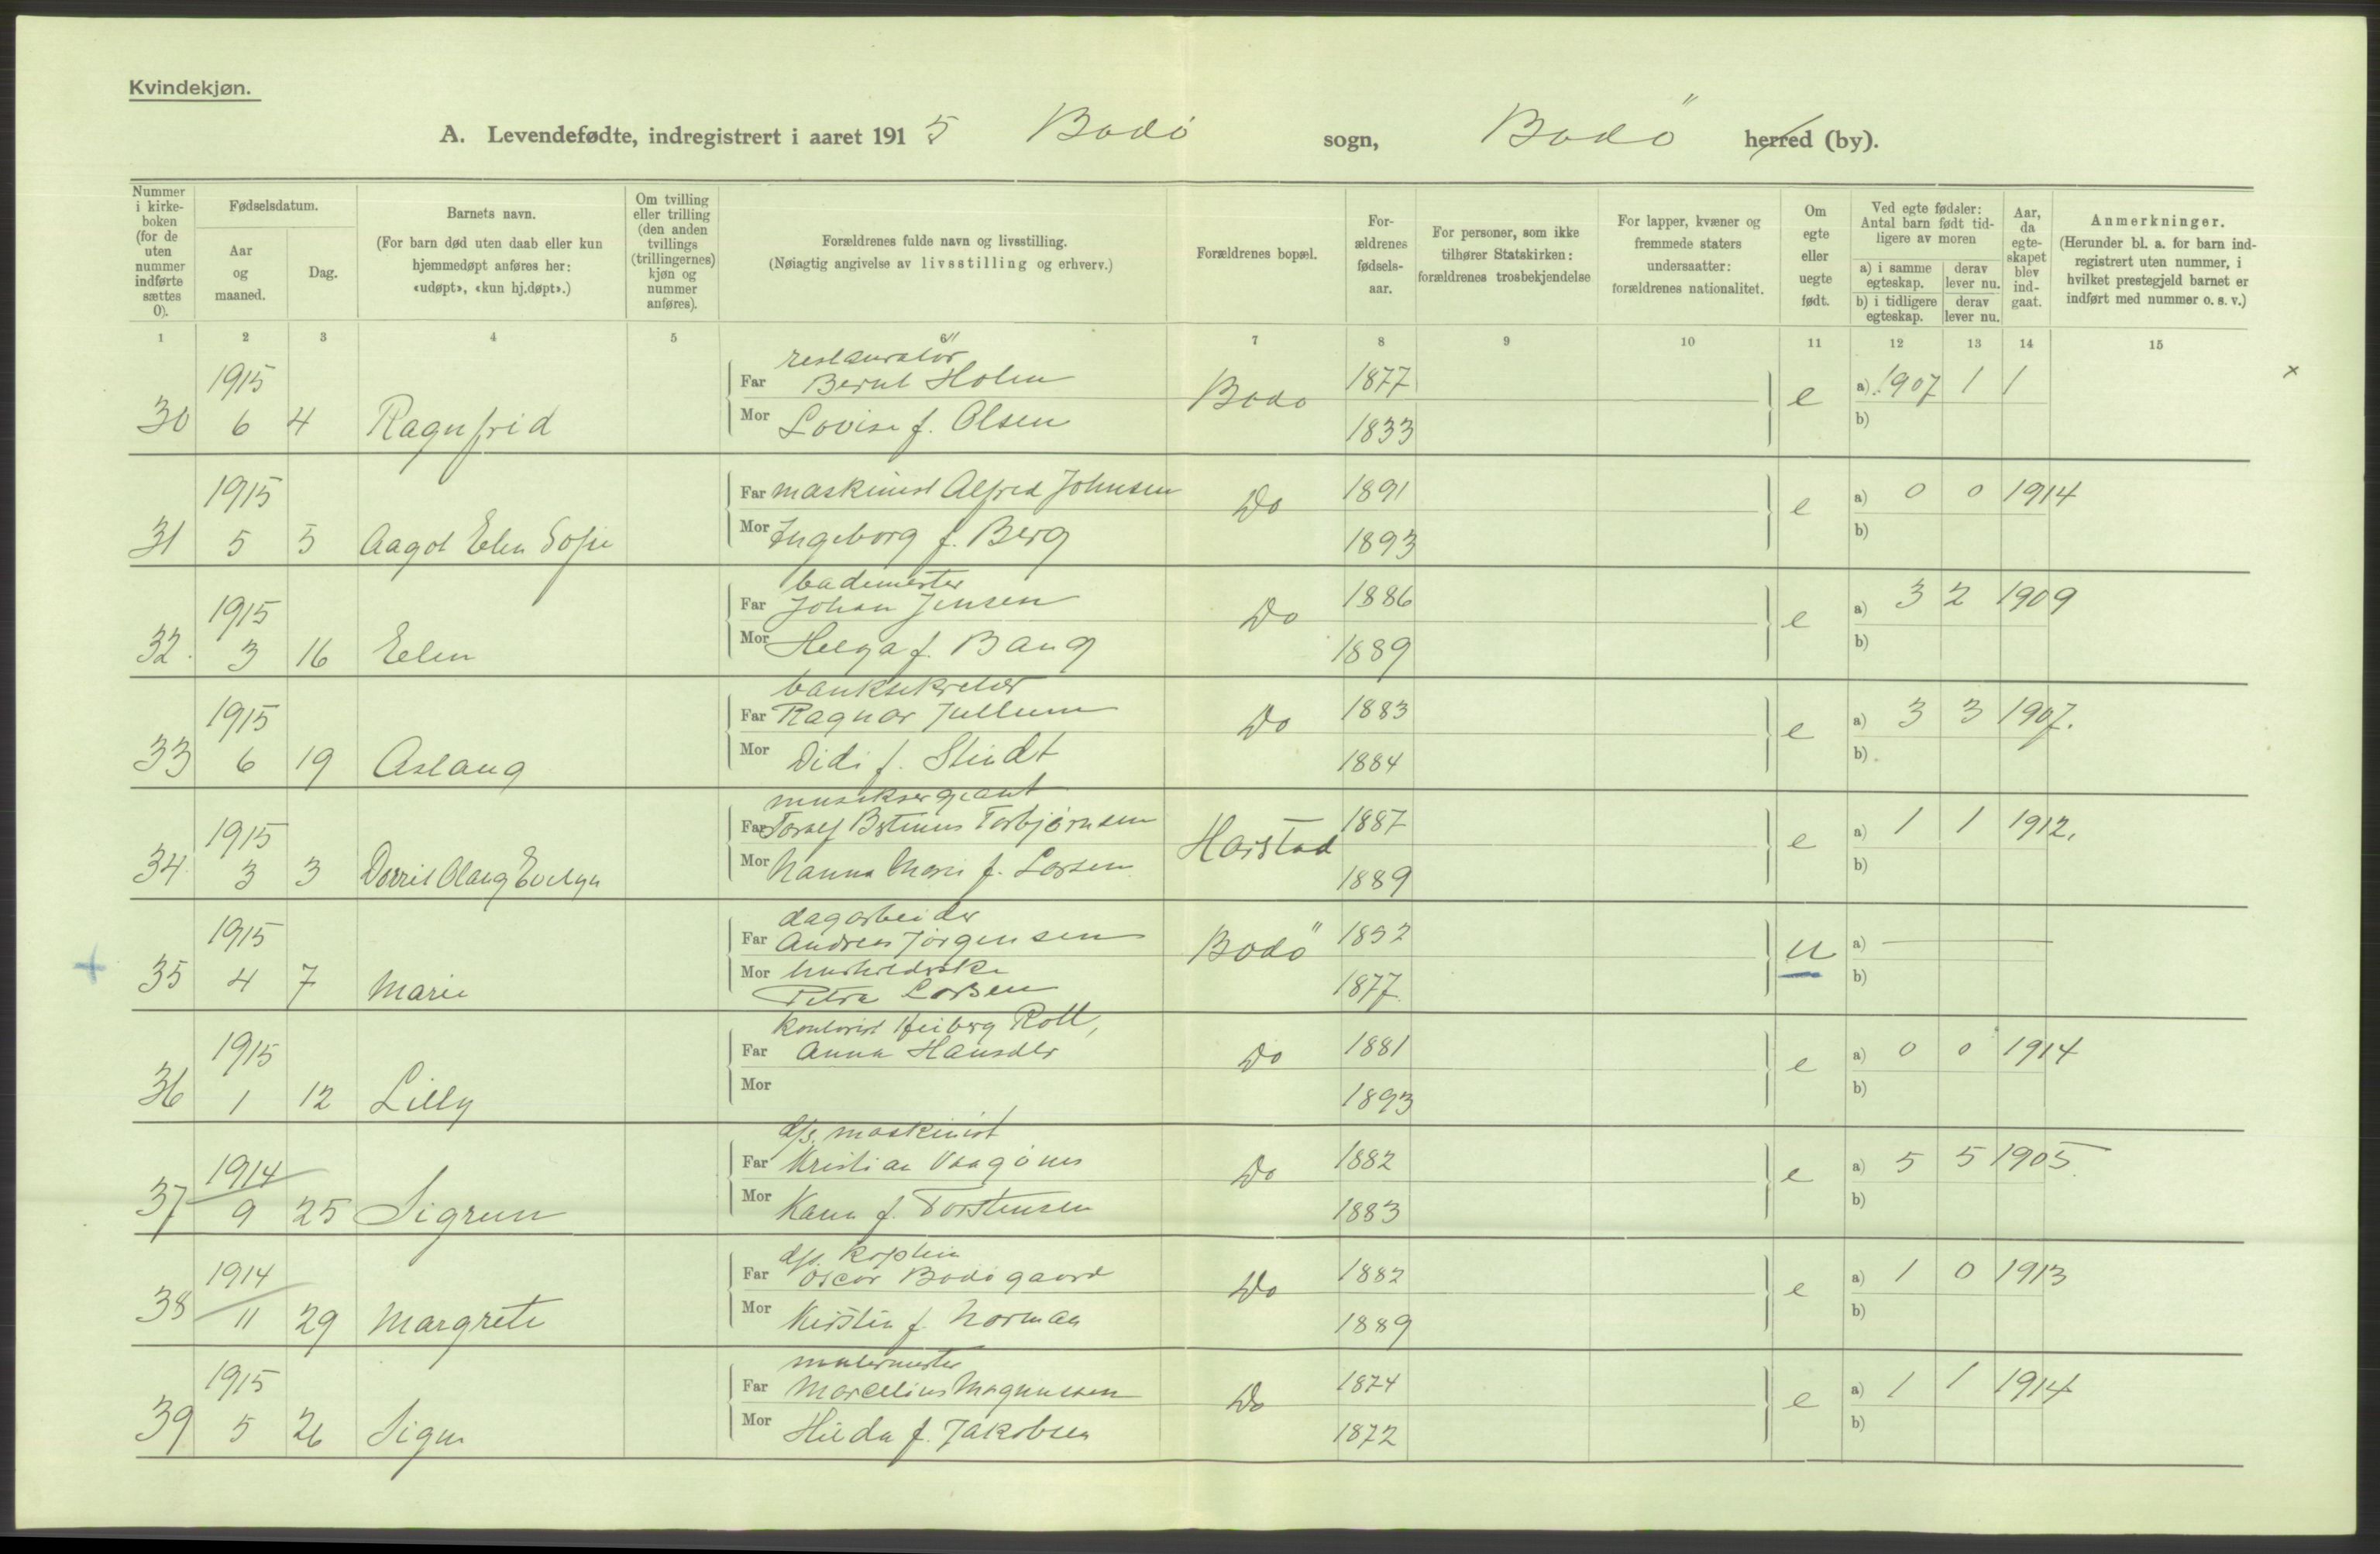 Kvindekjøn.
A. Levendefødte, indregistrert i aaret 1915 Bodö sogn, Bodö herred (by).
Nummer i kirkeboken (for de uten nummer indførte sættes 0).
Fødselsdatum.
Aar og maaned.
Dag.
Barnets navn.
(For barn død uten daab eller kun hjemmedøpt anføres her: «udøpt», «kun hj.døpt».)
Om tvilling eller trilling (den anden tvillings (trillingernes) kjøn og nummer anføres).
Forældrenes fulde navn og livsstilling.
(Nøiagtig angivelse av livsstilling og erhverv.)
Forældrenes bopæl.
Forældrenes fødselsaar.
For personer, som ikke tilhører Statskirken: forældrenes trosbekjendelse
For lapper, kvæner og fremmede staters undersaatter: forældrenes nationalitet.
Om egte eller uegte født.
Ved egte fødsler: Antal barn født tidligere av moren
a) i samme egteskap.
derav lever nu.
b) i tidligere egteskap.
derav lever nu.
Aar, da egteskapet blev indgaat.
Anmerkninger.
(Herunder bl. a. for barn indregistrert uten nummer, i hvilket prestegjeld barnet er indført med nummer o. s. v.)
1 2 3 4 5 6 7 8 9 10 11 12 13 14 15
restauratör
1915 Far Bernt Holm Bodo 1877 e a) 1907 1 1 x
30 6 4 Ragnfrid Mor Lovise f. Olsen 1833 b)
1915 Far maskinist Alfred Johnsen Do 1891 e a) 0 0 1914
31 5 5 Aagot Elen Sofie Mor Ingeborg f. Berg 1893 b)
bademester
1915 Far Johan Jensen Do 1886 e a) 3 2 1909
32. 3 16 Elen Mor Helga f. Bang 1889 b)
banksekretær
1915 Far Ragnar Jullum Do 1883 e a) 3 3 1907.
33 6 19 Aslaug Mor Didi f. Stindt 1884 b)
musiksergeant
1915 Far Torbjörnsen Harstad 1887 e a) 1 1 1912.
34 3 3 Dorrit Olaug Evelyn Mor Nanna Marie f. Larsen 1889 b)
dagarbeider
1915 Far Andreas Jörgensen Bodö 1852 u a)
+ 35 4 7 Marie Mor
Petra Larsen 1877. b)
kontorist Heiberg Roll,
1915 Far Anna Hansdtr Do 1881 e a) 0 0 1914
36 1 12 Lilly Mor 1893 b)
d/s. maskinist
1914 Far Kristian Vaagönes Do 1882 e a) 5 5 1905.
37 9 25 Sigrun Mor f. Torstensen 1883 b)
d/s. kaptein
1914 Far Oscar Bodögaard Do 1882 e a) 1 0 1913
38 11 29 Margrete Mor Kirstin f. Norman 1889 b)
malermester
1915 Far Marcelius Magnussen Do 1874 e a) 1 1 1914
39 5 26 Signe Mor Hilda f. Jakobsen 1872 b)